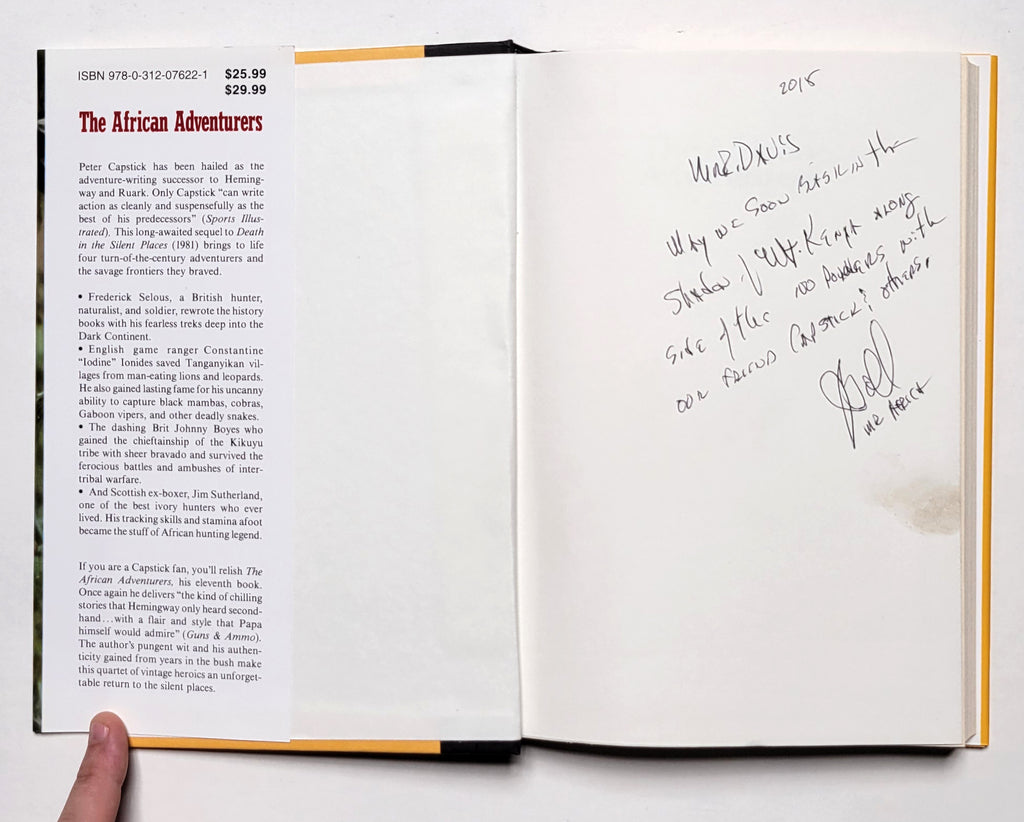 ISBN 978-0-312-07622-1 $25.99
$29.99
The African Adventurers
Peter Capstick has been hailed as the
adventure-writing successor to Heming-
way and Ruark. Only Capstick “can write
action as cleanly and suspensefully as the
best of his predecessors” (Sports Illus-
trated). This long-awaited sequel to Death
in the Silent Places (1981) brings to life
four turn-of-the-century adventurers and
the savage frontiers they braved.
• Frederick Selous, a British hunter,
naturalist, and soldier, rewrote the history
books with his fearless treks deep into the
Dark Continent.
• English game ranger Constantine
“Iodine” Ionides saved Tanganyikan vil-
lages from man-eating lions and leopards.
He also gained lasting fame for his uncanny
ability to capture black mambas, cobras,
Gaboon vipers, and other deadly snakes.
• The dashing Brit Johnny Boyes who
gained the chieftainship of the Kikuyu
tribe with sheer bravado and survived the
ferocious battles and ambushes of inter-
tribal warfare.
• And Scottish ex-boxer, Jim Sutherland,
one of the best ivory hunters who ever
lived. His tracking skills and stamina afoot
became the stuff of African hunting legend.
If you are a Capstick fan, you’ll relish The
African Adventurers, his eleventh book.
Once again he delivers “the kind of chilling
stories that Hemingway only heard second-
hand...with a flair and style that Papa
himself would admire” (Guns & Ammo).
The author’s pungent wit and his authen-
ticity gained from years in the bush make
this quartet of vintage heroics an unforget-
table return to the silent places.
2015
MR. DAVIS
MAY WE SOON BASK IN the
SHADOW of Mt. KENYA ALONG
SIDE of the 100 POUNDERS with
OUR FRIEND CAPSTICK & others.
MR AFRICA